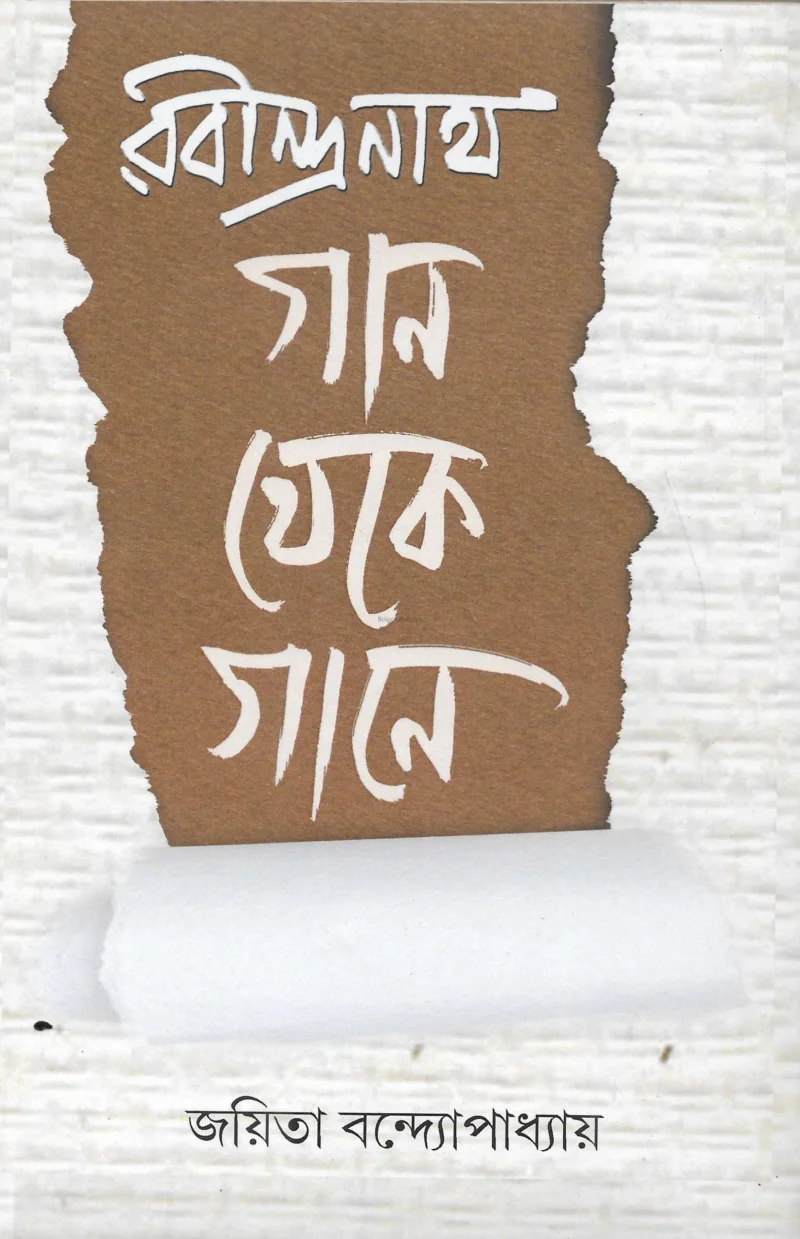 রবীন্দ্রনাথ
গান
থেকে
গানে
জয়িতা বন্দ্যোপাধ্যায়